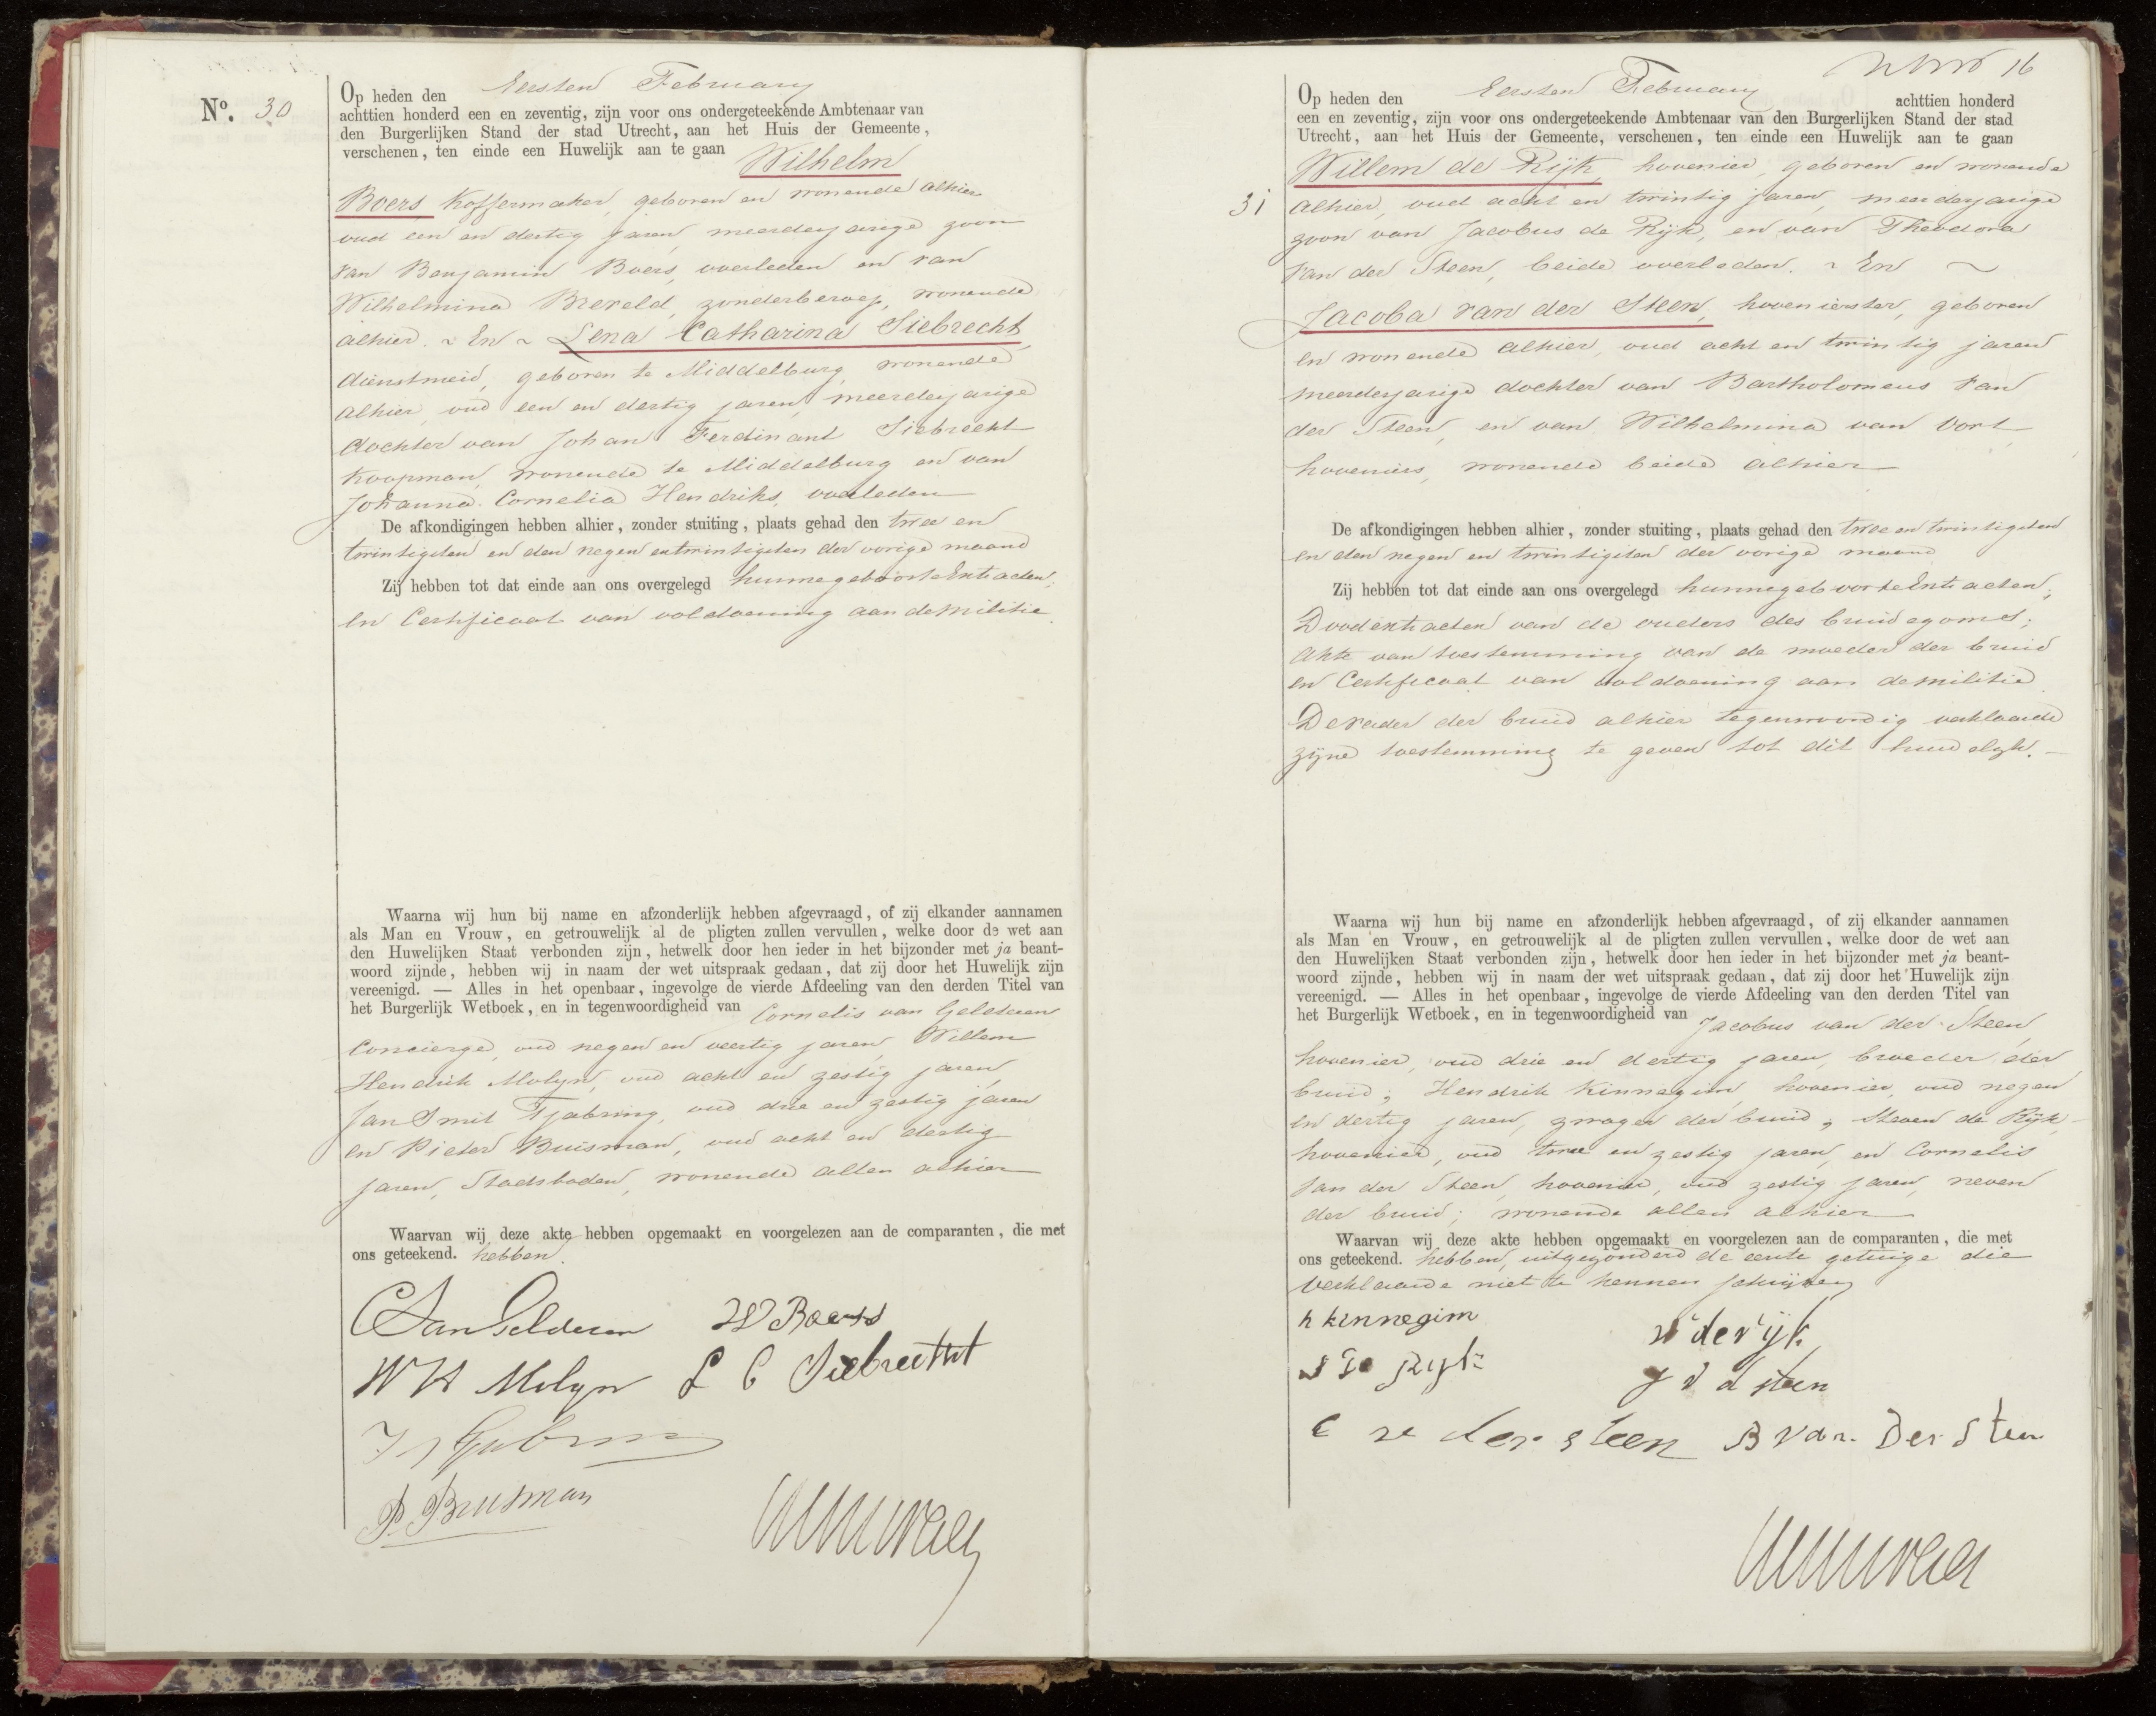 No. 30
Op heden den Eersten February
achttien honderd een en zeventig, zijn voor ons ondergeteekende Ambtenaar van
den Burgerlijken Stand der stad Utrecht, aan het Huis der Gemeente,
verschenen, ten einde een Huwelijk aan te gaan Wilhelm
Boers Koffermaker, geboren en wonende alhier
oud een en dertig jaren, meerderjarige zoon
van Benjamin Boers, overleden en van
Wilhelmina Breveld, zonder beroep, wonende
alhier. ~ En ~ Lena Catharina Siebrecht,
dienstmeid, geboren te Middelburg, wonende
alhier, oud een en dertig jaren, meerderjarige
dochter van Johan Ferdinant Siebrecht
Koopman, wonende te Middelburg en van
Johanna Cornelia Hendriks, overleden
De afkondigingen hebben alhier, zonder stuiting, plaats gehad den twee en
twintigsten en den negen en twintigsten der vorige maand
Zij hebben tot dat einde aan ons overgelegd hunne geboorte Extracten;
en Certificaat van voldoening aan de Militie.
Waarna wij hun bij name en afzonderlijk hebben afgevraagd, of zij elkander aannamen
als Man en Vrouw, en getrouwelijk al de pligten zullen vervullen, welke door de wet aan
den Huwelijken Staat verbonden zijn, hetwelk door hen ieder in het bijzonder met ja beant-
woord zijnde, hebben wij in naam der wet uitspraak gedaan, dat zij door het Huwelijk zijn
vereenigd. — Alles in het openbaar, ingevolge de vierde Afdeeling van den derden Titel van
het Burgerlijk Wetboek, en in tegenwoordigheid van Cornelis van Gelderen
Concierge, oud negen en veertig jaren, Willem
Hendrik Molyn, oud acht en zestig jaren,
Jan Smit Tjabring, oud drie en zestig jaren
en Pieter Buisman, oud acht en dertig
jaren, Stadsboden, wonende allen alhier
Waarvan wij deze akte hebben opgemaakt en voorgelezen aan de comparanten, die met
ons geteekend. hebben.
C Van Gelderen W Boers
W H Molyn L C Siebrecht
P. Buisman
16
Op heden den Eersten February achttien honderd
een en zeventig, zijn voor ons ondergeteekende Ambtenaar van den Burgerlijken Stand der stad
Utrecht, aan het Huis der Gemeente, verschenen, ten einde een Huwelijk aan te gaan
Willem de Rijk, hovenier, geboren en wonende
31 alhier, oud acht en twintig jaren, meerderjarige
zoon van Jacobus de Rijk, en van Theodora
van der Steen, beide overleden. ~ En ~
Jacoba van der Steen, hovenierster, geboren
en wonende alhier, oud acht en twintig jaren
meerderjarige dochter van Bartholomeus van
der Steen, en van Wilhelmina van Oort
hoveniers, wonende beide alhier
De afkondigingen hebben alhier, zonder stuiting, plaats gehad den twee en twintigsten
en den negen en twintigsten der vorige maand
Zij hebben tot dat einde aan ons overgelegd hunne geboorte Extracten;
Doodextracten van de ouders des bruidegoms;
Akte van toestemming van de moeder der bruid
en Certificaat van voldoening aan de militie
De vader der bruid alhier tegenwoordig verklaarde
zijne toestemming te geven tot dit huwelyk. —
Waarna wij hun bij name en afzonderlijk hebben afgevraagd, of zij elkander aannamen
als Man en Vrouw, en getrouwelijk al de pligten zullen vervullen, welke door de wet aan
den Huwelijken Staat verbonden zijn, hetwelk door hen ieder in het bijzonder met ja beant-
woord zijnde, hebben wij in naam der wet uitspraak gedaan, dat zij door het Huwelijk zijn
vereenigd. — Alles in het openbaar, ingevolge de vierde Afdeeling van den derden Titel van
het Burgerlijk Wetboek, en in tegenwoordigheid van Jacobus van der Steen,
hovenier, oud drie en dertig jaren, broeder der
bruid; Hendrik Kinnegim, hovenier, oud negen
en dertig jaren, zwager der bruid; Steven de Rijk,
hovenier, oud twee en zestig jaren, en Cornelis
van der Steen, hovenier, oud zestig jaren, neven
der bruid; wonende allen alhier
Waarvan wij deze akte hebben opgemaakt en voorgelezen aan de comparanten, die met
ons geteekend. hebben, uitgezonderd de eerste getuige die
verklaarde niet te kennen schrijven
h kinnegim w de rijk
S de Ryk J v d steen
C ve der steen B van Der Steen